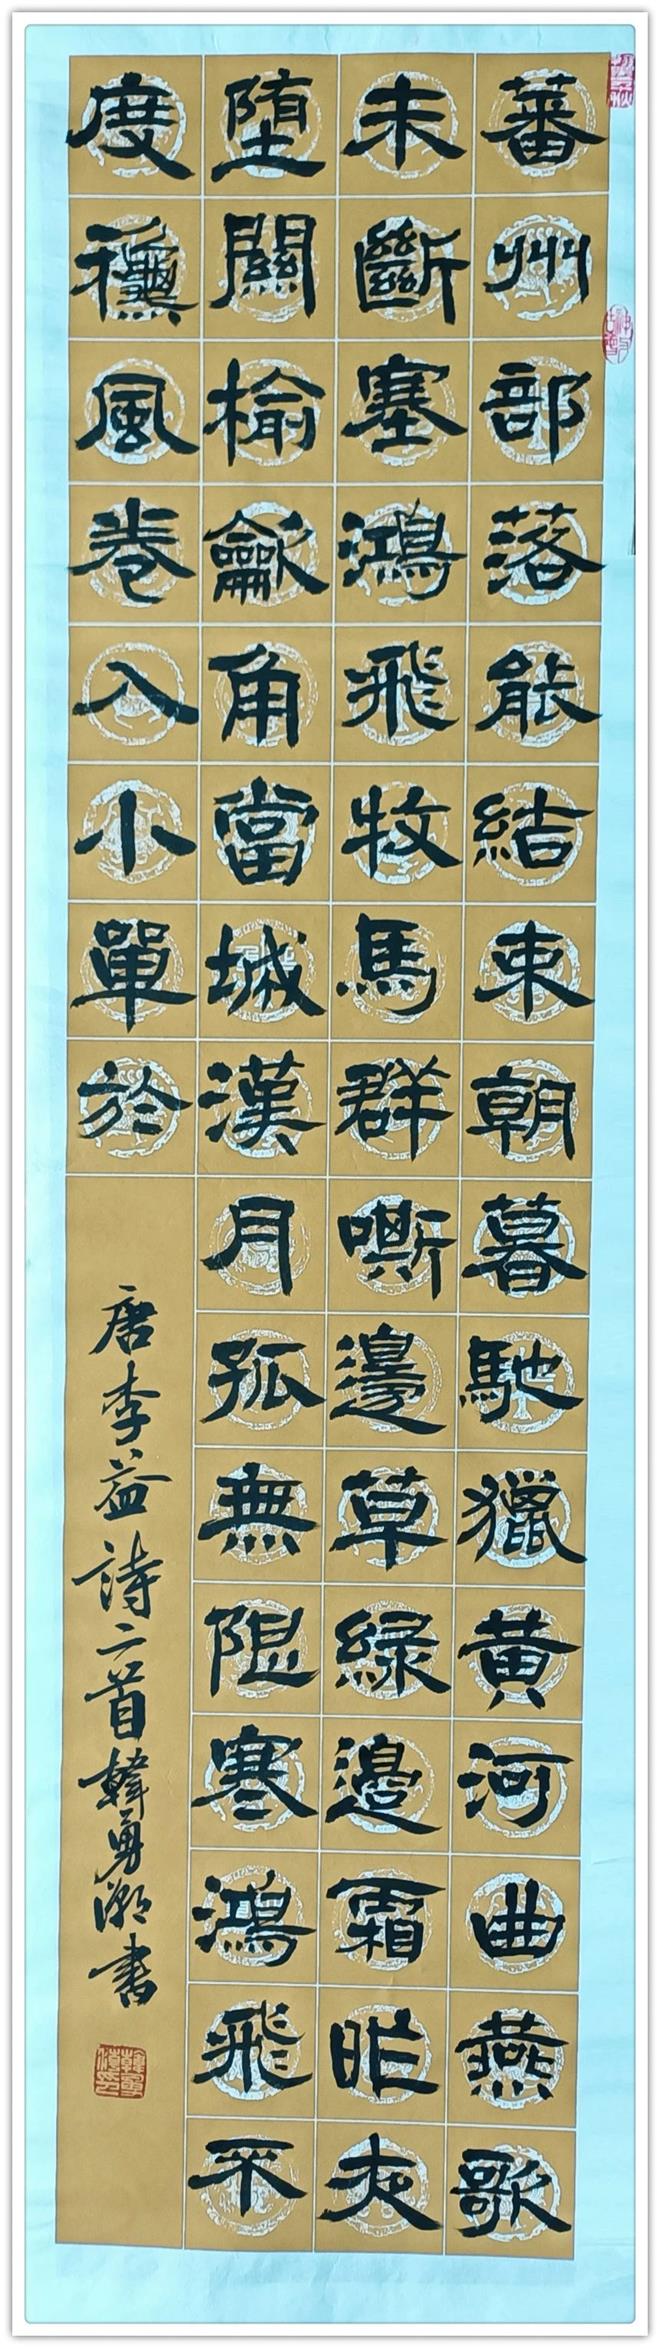 蕃州部落能結束朝暮馳獵黄河曲燕歌
未斷塞鴻飛牧馬群嘶邊草綠邊霜昨夜
堕關榆龡角當城漢月孤無限寒鴻飛不
度龝風卷入小單於
唐李益詩二首韓勇書